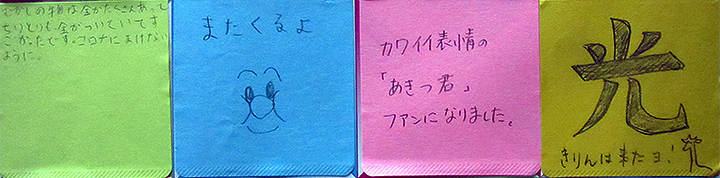 むかしの物は金がたくさんあって
もとても金がついていてす
ごかったです。コロナにまけない
ように。
またくるよ
カワイイ表情の
「あきつ君」
ファンになりました。
光
きりんは来たヨ!